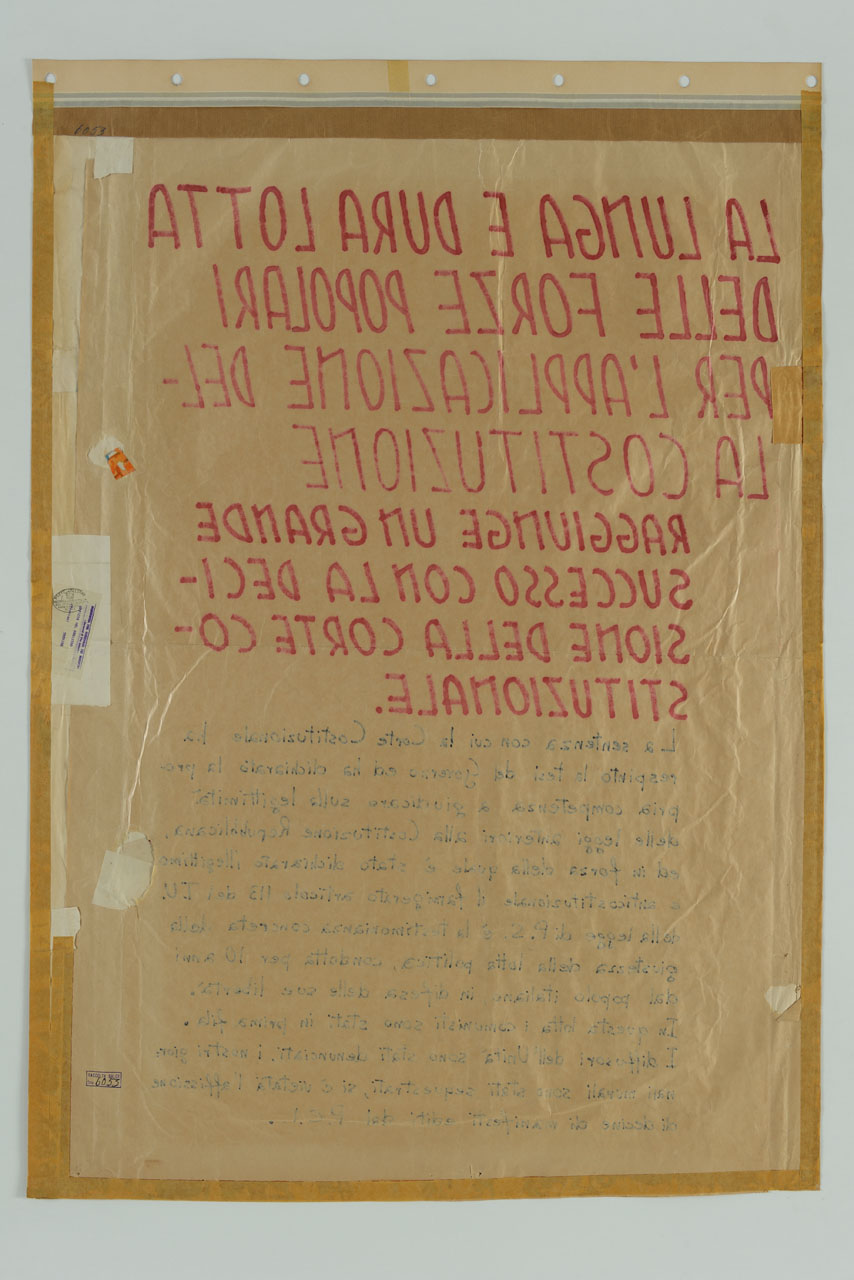 6053
LA LUNGA E DURA LOTTA
DELLE FORZE POPOLARI
PER L'APPLICAZIONE DEL-
LA COSTITUZIONE
RAGGIUNGE UN GRANDE
SUCCESSO CON LA DECI-
SIONE DELLA CORTE CO-
STITUZIONALE.
La sentenza con cui la Corte Costituzionale ha
respinto la tesi del Governo ed ha dichiarato la pro-
pria competenza a giudicare sulla legittimità
delle leggi anteriori alla Costituzione Repubblicana,
ed in forza della quale è stato dichiarato illegittimo
e anticostituzionale il famigerato articolo 113 del T.U.
della legge di P.S. è la testimonianza concreta della
giustezza della lotta politica, condotta per 10 anni
dal popolo italiano in difesa delle sue libertà.
In questa lotta i comunisti sono stati in prima fila.
I diffusori dell'Unità sono stati denunciati, i nostri gior-
nali murali sono stati sequestrati, si è vietata l'affissione
di decine di manifesti editi dal P.C.I.
6053